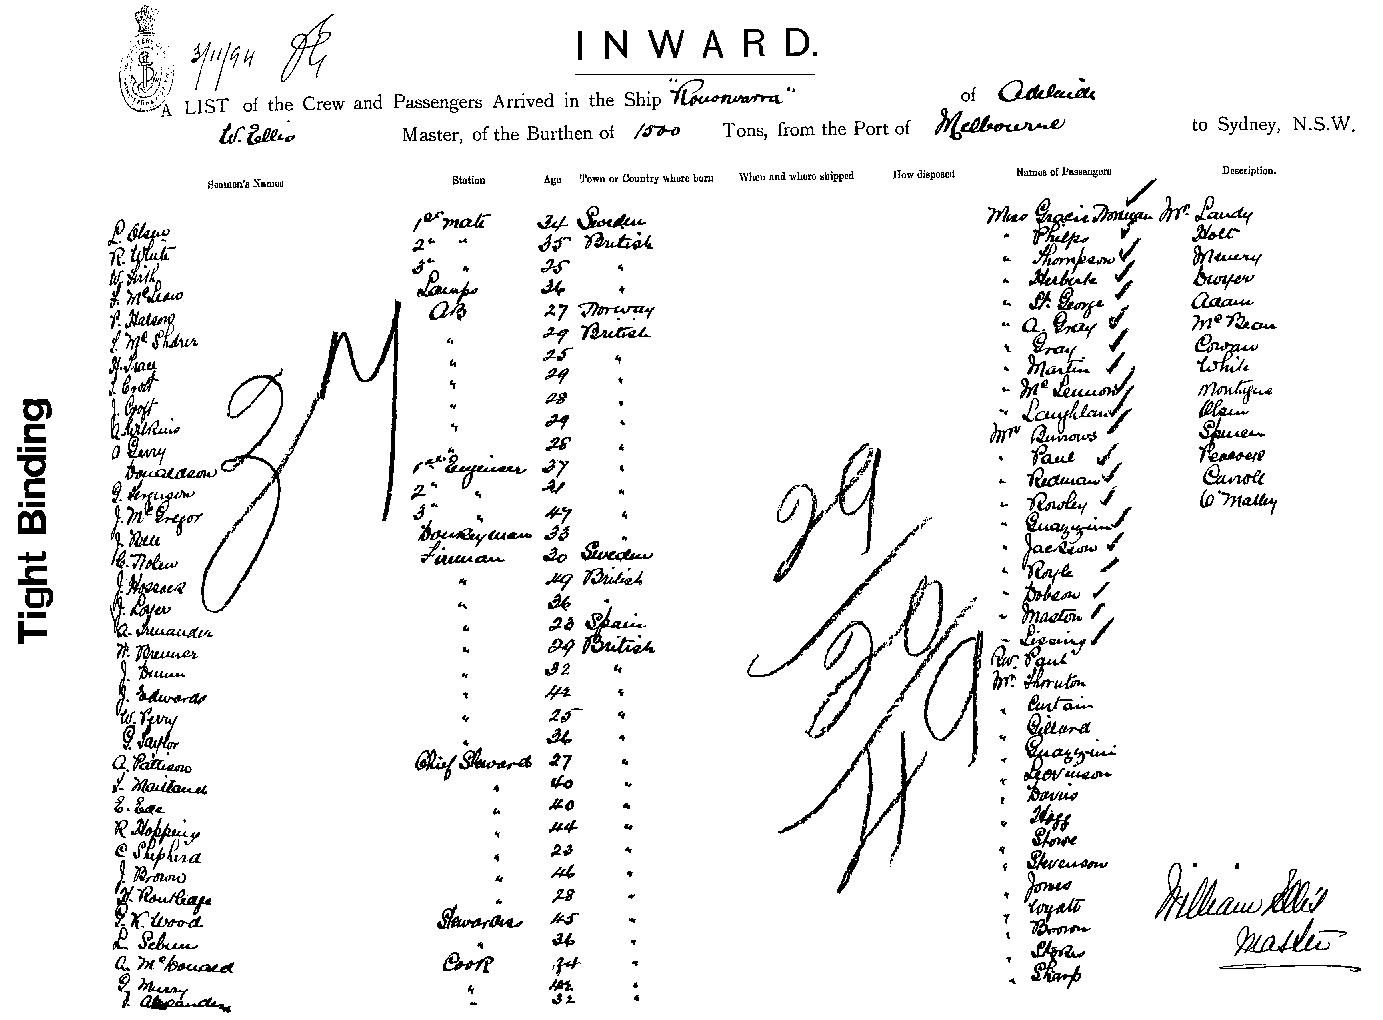 3/11/94
INWARD.
A LIST of the Crew and Passengers Arrived in the Ship "Rouonwarra" of Adelaide
W. Ellis Master, of the Burthen of 1500 Tons, from the Port of Melbourne to Sydney, N.S.W.
Seamen's Names Station Age Town or Country where born When and where shipped How disposed Names of Passengers Description.
L. Olsen 1st mate 34 Sweden Miss Gracie Mr. Landy
R. White 2" " 35 British " Philps Holt
W. Firth 3" " 25 " " Thompson
Lamps 36 " " Herbert Dwyer
P. AB 27 Norway " St. George Adam
" 29 British " A. Gray McBean
" 25 " " Gray Cowan
" 29 " " Martin White
J. Croft " 28 " " McLennon Montague
A. Wilkins " 29 " " Laughlan Olsen
" 28 " Mrs Burrows Spencer
Donaldson 1st Engineer 37 " " Paul Peacock
G. Ferguson 2" " " " Redman Carroll
J. McGregor 3" " 47 " " Rowley O'Malley
J. Donkeyman 33 " " Guazzini
C. Nolen Fireman 30 Sweden " Jackson
J. " 49 British " Royle
J. " 36 " " Dobson
A. " 23 Spain " Maston
W. Brenner " 29 British " Lissing
J. " 32 " Rev. Paul
J. Edwards " 42 " Mr. Thornton
W. Perry " 25 " " Curtain
G. Taylor " 36 " " Gillard
A. Pattison Chief Steward 27 " " Guazzini
Maitland " 40 " " Levinson
E. Ede " 40 " " Davis
R Hopping " 44 " " Hogg
C Shepherd " 23 " " Stowe
J. Brown " 46 " " Stevenson
H. Routledge " 28 " " Jones
K. Wood Stewardess 45 " " Wyatt
L. " 36 " " Brown
A. McDonald Cook 34 " " Stokes
" 42 " " Sharp
Alexander " 32 "
37
29
20
49
William Ellis
Master
Tight Binding